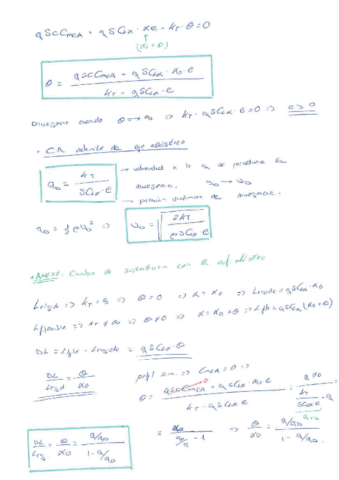 qSCCmCA + qSCLα · αe - kT · θ = 0
(α0 + θ)
θ = qSCCmCA + qSCLα · α0 · e / kT - qSCLα · e
Divergencia cuando θ → ∞ ⇒ kT - qSCLα · e = 0 ⇒ e > 0
• CA delante de eje elástico
qD = kT / SCLα · e
→ velocidad a la q se produce la
divergencia. qD → UD
→ presión dinámica de divergencia.
qD = ½ρUD² ⇒ UD = √ 2kT / ρSCLα e
Cambio de sustentación con
Lrígido ⇒ kT = ∞ ⇒ θ = 0 ⇒ α = α0 ⇒ Lrígido = qSCLα · α0
Lflexible ⇒ kT ≠ ∞ ⇒ θ ≠ 0 ⇒ α = α0 + θ ⇒ Lfle = qSCLα (α0 + θ)
DL = Lfle - Lrígido = qSCLα · θ
DL / Lrigd = θ / α0
perfil sim. ⇒ CmCA = 0 ⇒
θ = qSCCmCA + qSCLα · α0 e / kT - qSCLα e = q α0 / kT / SCLα e - q
= α0 / qD/q - 1 ⇒ θ / α0 = q/qD / 1 - q/qD
DL / Lrg = θ / α0 = q/qD / 1 - q/qD